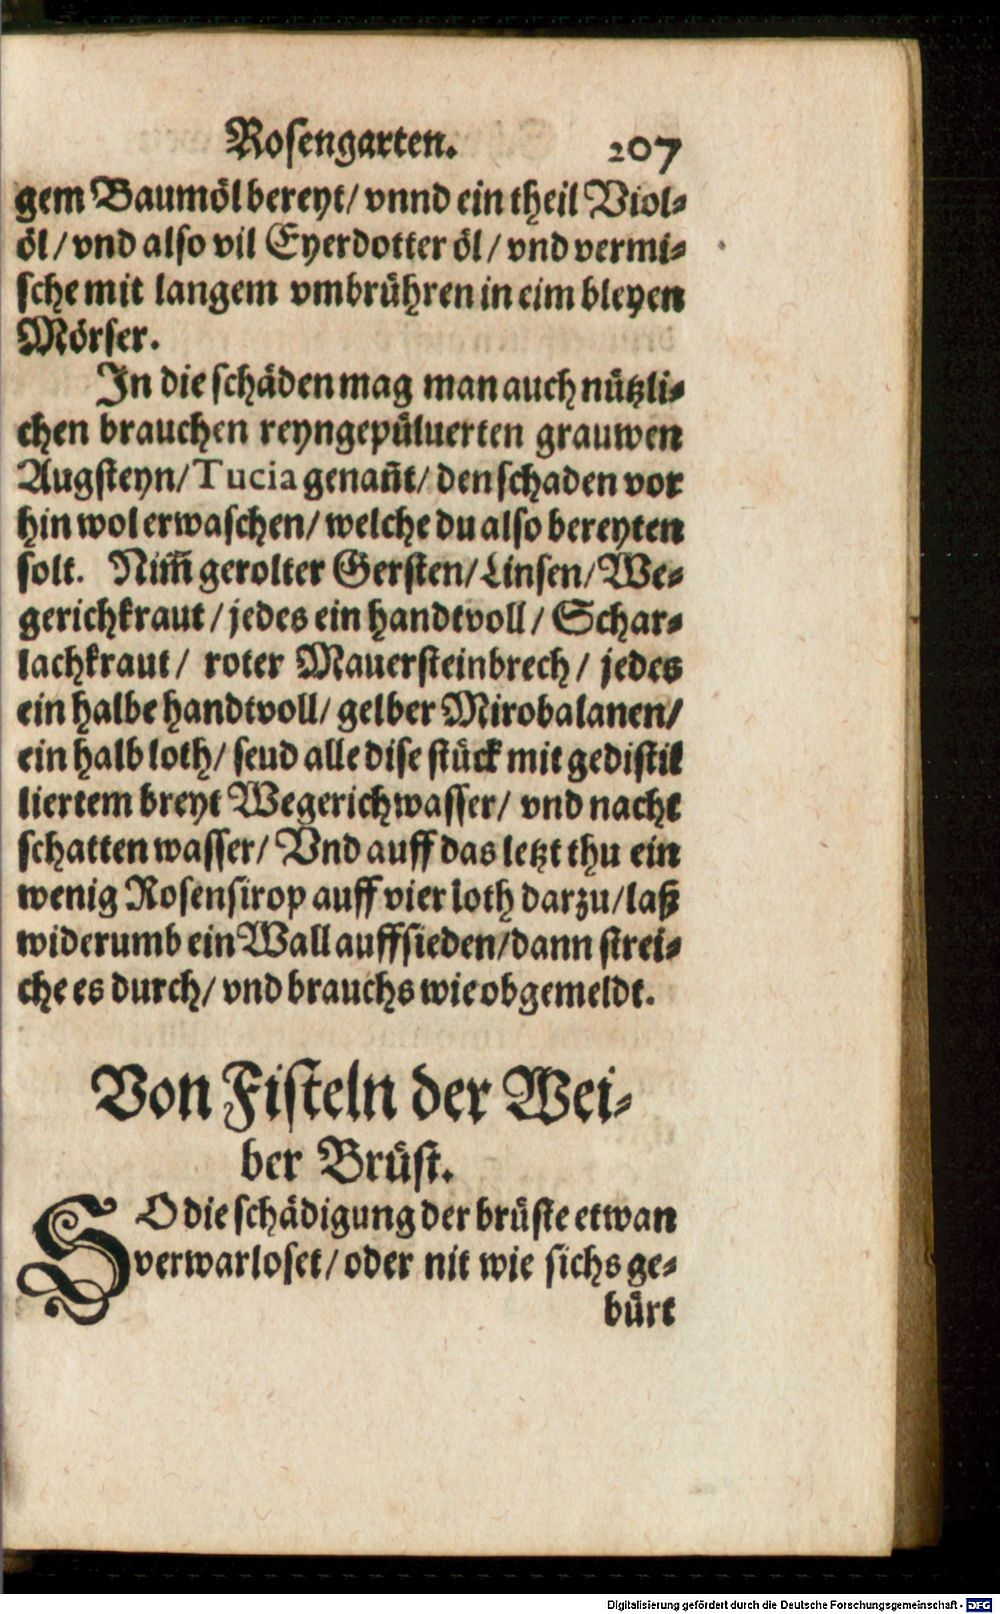 Rosengarten. 207
gem Baumöl bereyt/ vnnd ein theil Viol⸗
öl/ vnd also vil Eyerdotter öl/ vnd vermi⸗
sche mit langem vmbrühren in eim bleyen
Mörser.
In die schäden mag man auch nützli⸗
chen brauchen reyngepüluerten grauwen
Augsteyn/ Tucia genañt/ den schaden vor
hin wol erwaschen/ welche du also bereyten
solt. Nim̃ gerolter Gersten/ Linsen/ We⸗
gerichkraut/ jedes ein handtvoll/ Schar⸗
lachkraut/ roter Mauersteinbrech/ jedes
ein halbe handtvoll/ gelber Mirobalanen/
ein halb loth/ seud alle dise stück mit gedistil
liertem breyt Wegerichwasser/ vnd nacht
schatten wasser/ Vnd auff das letzt thu ein
wenig Rosensirop auff vier loth darzu/ laß
widerumb ein Wall auffsieden/ dann strei⸗
che es durch/ vnd brauchs wie obgemeldt.
Von Fisteln der Wei⸗
ber Brüst.
SO die schädigung der brüste etwan
verwarloset/ oder nit wie sichs ge⸗
bürt
Digitalisierung gefördert durch die Deutsche Forschungsgemeinschaft - DFG